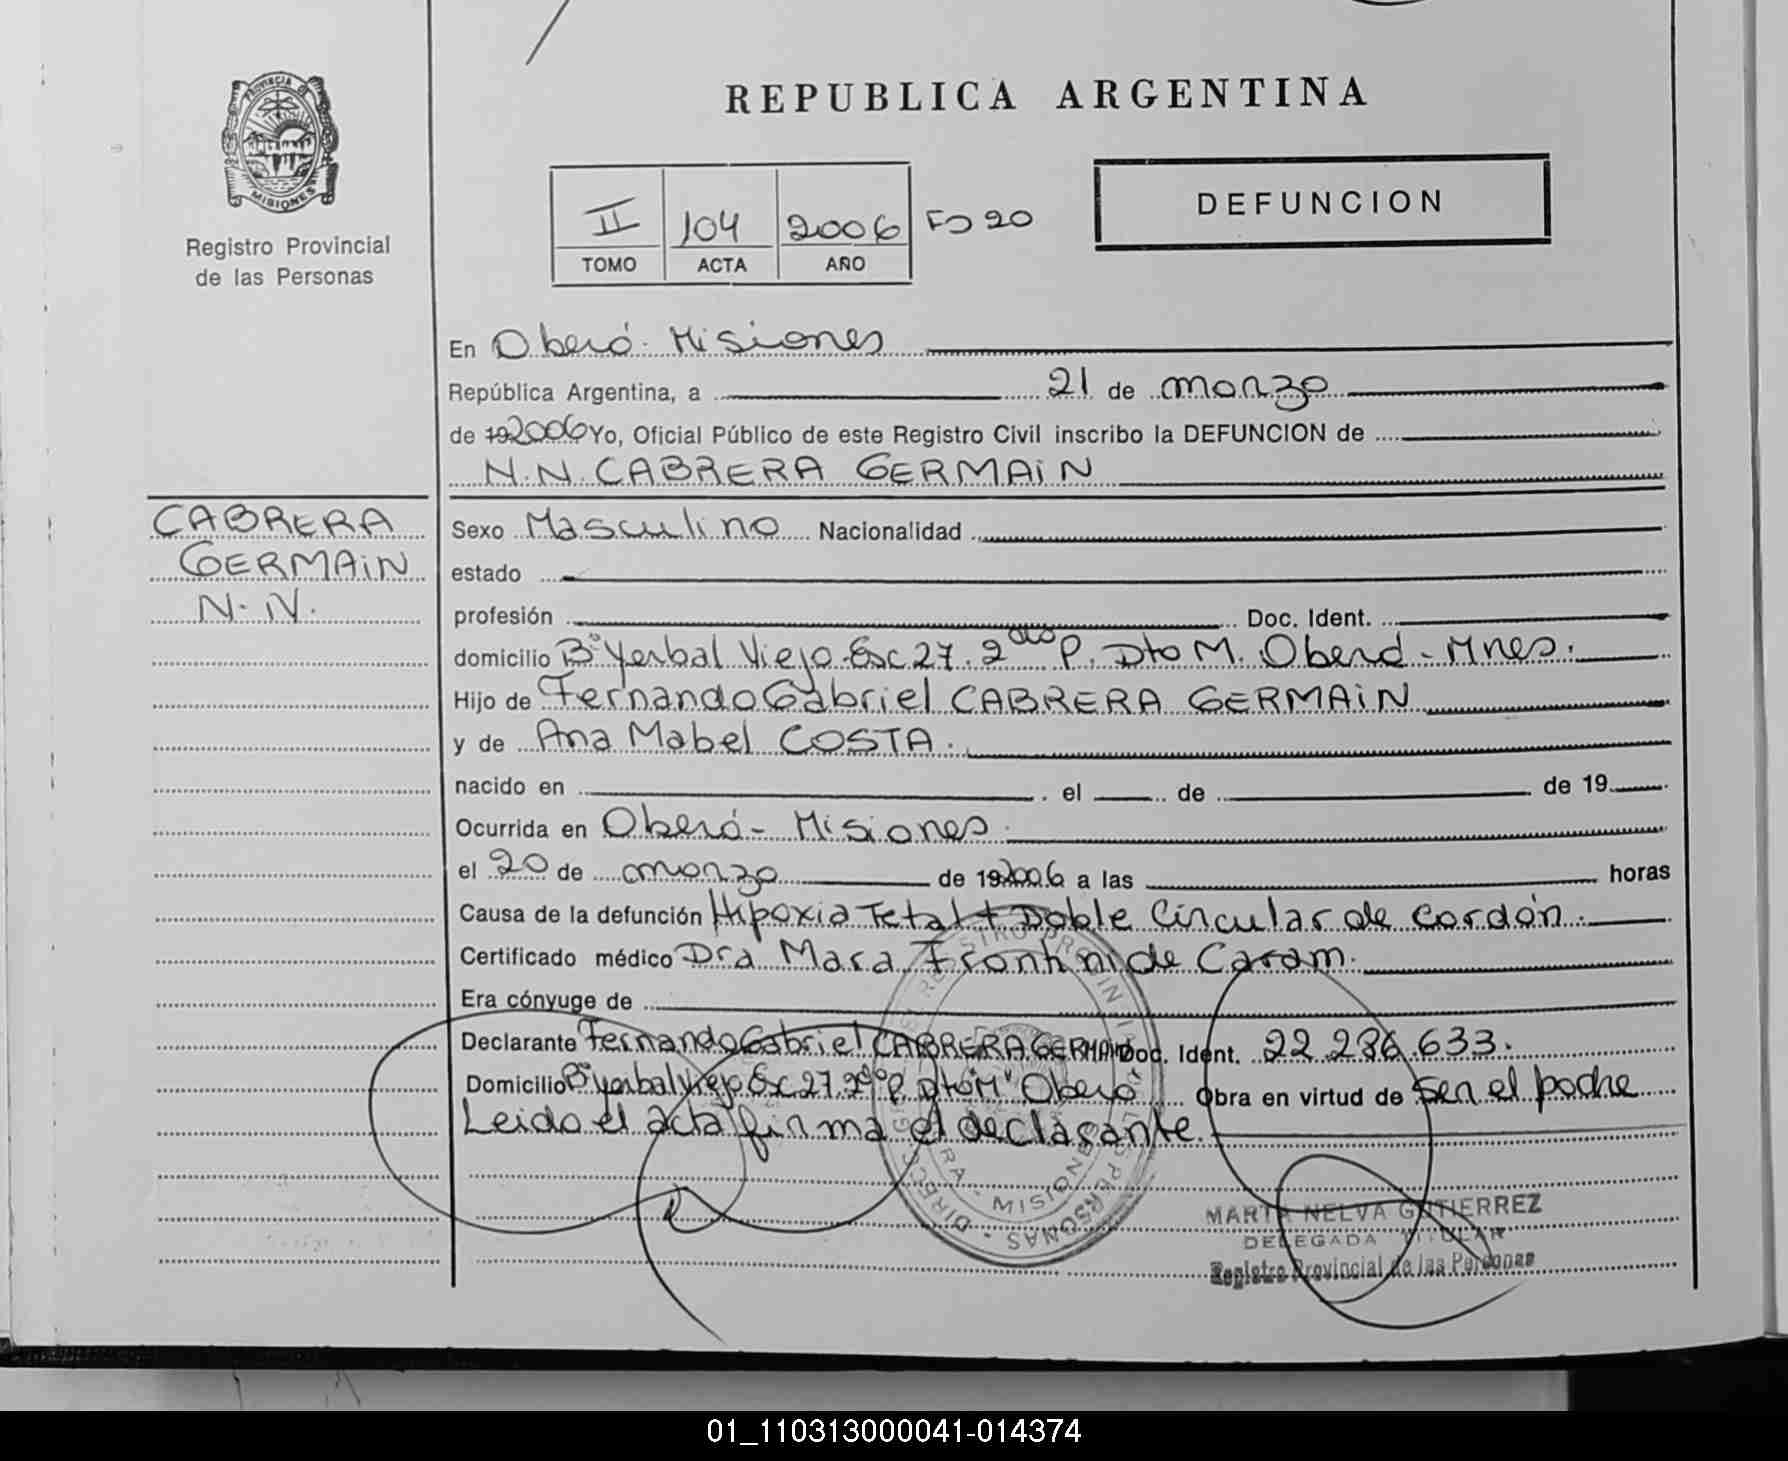 PROVINCIA DE
MISIONES
Registro Provincial
de las Personas
REPUBLICA ARGENTINA
II 104 2006 Fº 20
TOMO ACTA AÑO
DEFUNCION
En Oberá - Misiones
República Argentina, a 21 de marzo
de 192006 Yo, Oficial Público de este Registro Civil inscribo la DEFUNCION de
N.N. CABRERA GERMAIN
CABRERA
GERMAIN
N. N.
Sexo Masculino Nacionalidad
estado
profesión Doc. Ident.
domicilio Bº Yerbal Viejo Esc 27. 2do P. Dto M. Oberá - Mnes.
Hijo de Fernando Gabriel CABRERA GERMAIN
y de Ana Mabel COSTA.
nacido en , el de de 19
Ocurrida en Oberá - Misiones
el 20 de marzo de 192006 a las horas
Causa de la defunción Hipoxia Fetal + Doble Circular de cordón.
Certificado médico Dra Mara Frontini de Caram.
Era cónyuge de
Declarante Fernando Gabriel CABRERA GERMAIN Doc. Ident. 22.286.633.
Domicilio Bº Yerbal Viejo Esc 27. 2do P. Dto "M" Oberá Obra en virtud de Ser el padre
Leido el acta firma el declarante.
MARTA NELVA GUTIERREZ
DELEGADA TITULAR
Registro Provincial de las Personas
01_110313000041-014374